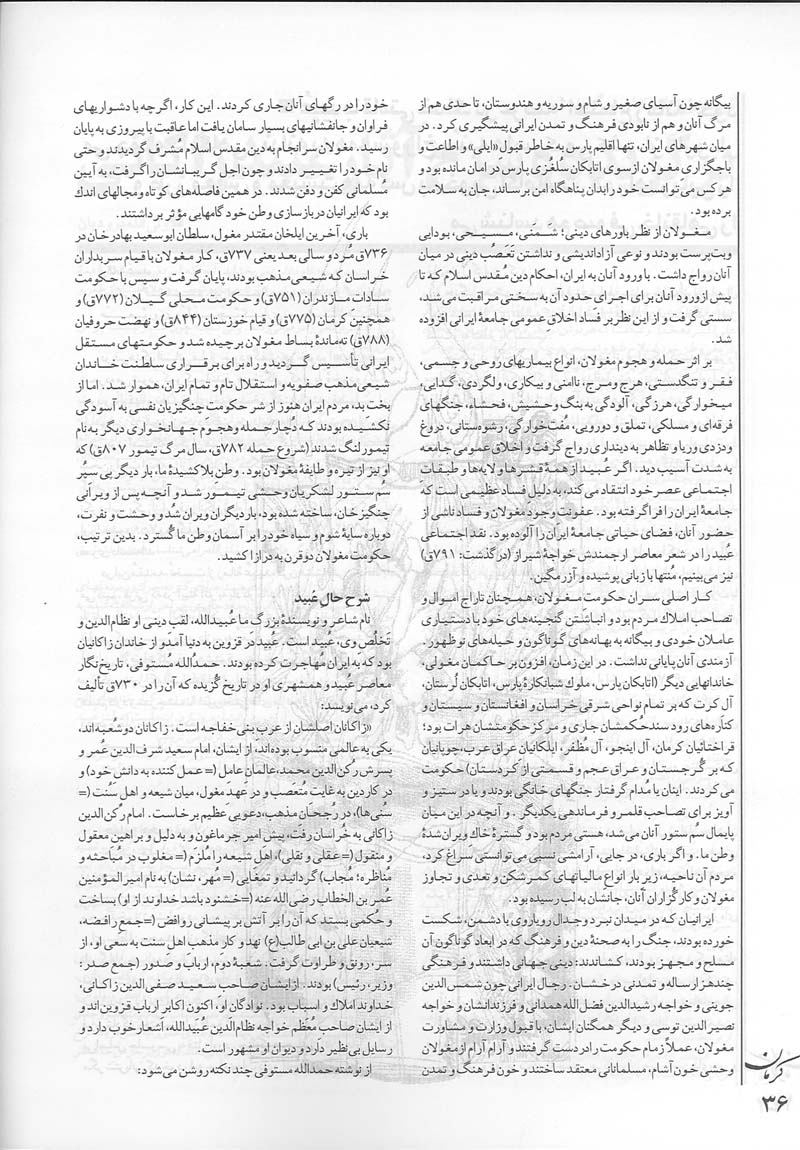 بیگانه چون آسیای صغیر و شام و سوریه و هندوستان، تا حدی هم از
مرگ آنان و هم از نابودی فرهنگ و تمدن ایرانی پیشگیری کرد. در
میان شهرهای ایران، تنها اقلیم پارس به خاطر قبول «ایلی» و اطاعت و
باجگزاری مغولان از سوی اتابکان سُلغُری پارس در امان مانده بود و
هر کس می‌توانست خود را بدان پناهگاه امن برساند، جان به سلامت
برده بود.
مغولان از نظر باورهای دینی؛ شمَنی، مسیحی، بودایی
وبت‌پرست بودند و نوعی آزاداندیشی و نداشتن تَعَصُب دینی در میان
آنان رواج داشت. با ورود آنان به ایران، احکام دین مُقدس اسلام که تا
پیش از ورود آنان برای اجرای حدود آن به سختی مراقبت می‌شد،
سستی گرفت و از این نظر بر فَساد اخلاقِ عمومی جامعهٔ ایرانی افزوده
شد.
بر اثر حمله و هجوم مغولان، انواع بیماریهای روحی و جسمی،
فقر و تنگدستی، هرج و مرج، ناامنی و بیکاری، ولگردی، گدایی،
میخوارگی، هرزگی، آلودگی به بنگ وحشیش، فحشاء، جنگهای
فرقه‌ای و مسلکی، تملق و دورویی، مُفت‌خوارگی، رشوه‌ستانی، دروغ
ودزدی وریا و تظاهر به دینداری رواج گرفت و اخلاق عمومی جامعه
به شدت آسیب دید. اگر عُبید از همهٔ قشرها و لایه‌ها و طبقات
اجتماعی عصر خود انتقاد می‌کند، به دلیل فساد عظیمی است که
جامعهٔ ایران را فرا گرفته بود. عفونت وجود مغولان و فساد ناشی از
حضور آنان، فضای حیاتی جامعهٔ ایران را آلوده بود. نقد اجتماعی
عُبید را در شعر معاصر ارجمندش خواجهٔ شیراز (درگذشت: ۷۹۱ق)
نیز می‌بینیم، مُنتها با زبانی پوشیده و آزرمگین.
کار اصلی سران حکومت مغولان، همچنان تاراج اموال و
تصاحب املاک مردم بود و انباشتن گنجینه‌های خود با دستیاری
عاملان خودی و بیگانه به بهانه‌های گوناگون و حیله‌های نوظهور.
آزمندی آنان پایانی نداشت. در این زمان، افزون بر حاکمان مغولی،
خاندانهایی دیگر (اتابکان پارس، ملوک شبانکارهٔ پارس، اتابکان لُرستان،
آل کرت که بر تمام نواحی شرقی خراسان و افغانستان و سیستان و
کناره‌های رود سند حُکمشان جاری و مرکز حکومتشان هرات بود؛
قراختائیان کرمان، آل اینجو، آل مُظَفر، ایلکانیان عراق عرب، چوپانیان
که بر گرجستان و عراق عجم و قسمتی از کردستان) حکومت
می‌کردند. اینان یا مُدام گرفتار جنگهای خانگی بودند و یا در ستیز و
آویز برای تصاحب قلمرو فرماندهی یکدیگر. و آنچه در این میان
پایمال سُم ستور آنان می‌شد، هستی مردم بود و گسترهٔ خاک ویران شدهٔ
وطن ما. و اگر باری، در جایی، آرامشی نسبی می‌توانستی سُراغ کرد،
مردم آن ناحیه، زیر بار انواع مالیاتهای کمرشکن و تعدی و تجاوز
مغولان و کارگزاران آنان، جانشان به لب رسیده بود.
ایرانیان که در میدان نبرد و جدال رویاروی با دشمن، شکست
خورده بودند، جنگ را به صحنهٔ دین و فرهنگ که در ابعاد گوناگون آن
مسلح و مجهز بودند، کشاندند: دینی جهانی داشتند و فرهنگی
چندهزارساله و تمدنی درخشان. رجال ایرانی چون شمس‌الدین
جوینی و خواجه رشیدالدین فضل‌الله همدانی و فرزندانشان و خواجه
نصیرالدین توسی و دیگر همگنان ایشان، با قبول وزارت و مشاورت
مغولان، عملاً زمام حکومت را در دست گرفتند و آرام آرام از مغولان
وحشی خون‌آشام، مسلمانانی معتقد ساختند و خون فرهنگ و تمدن
خود را در رگهای آنان جاری کردند. این کار، اگرچه با دشواریهای
فراوان و جانفشانیهای بسیار سامان یافت اما عاقبت با پیروزی به پایان
رسید. مغولان سرانجام به دین مقدس اسلام مُشرف گردیدند و حتی
نام خود را تغییر دادند و چون اجل گریبانشان را گرفت، به آیین
مُسلمانی کفن و دفن شدند. در همین فاصله‌های کوتاه و مجالهای اندک
بود که ایرانیان در بازسازی وطن خود گامهایی مؤثر برداشتند.
باری، آخرین ایلخان مقتدر مغول، سلطان ابوسعید بهادرخان در
۷۳۶ق مُرد و سالی بعد یعنی ۷۳۷ق، کار مغولان با قیام سربداران
خراسان که شیعی مذهب بودند، پایان گرفت و سپس با حکومت
سادات مازندران (۷۵۱ق) و حکومت محلی گیلان (۷۷۲ق) و
همچنین کرمان (۷۷۵ق) و قیام خوزستان (۸۴۴ق) و نهضت حروفیان
(۷۸۸ق) ته‌ماندهٔ بساط مغولان برچیده شد و حکومتهای مستقل
ایرانی تأسیس گردید و راه برای برقراری سلطنت خاندان
شیعی‌مذهب صفویه و استقلال تام و تمام ایران، هموار شد. اما از
بخت بد، مردم ایران هنوز از شر حکومت چنگیزیان نفسی به آسودگی
نکشیده بودند که دُچار حمله وهجوم جهانخواری دیگر به نام
تیمور لنگ شدند (شروع حمله ۷۸۲ق، سال مرگ تیمور ۸۰۷ق) که
او نیز از تیره و طایفهٔ مغولان بود. وطن بلاکشیدهٔ ما، بار دیگر پی سپُر
سُم ستور لشکریان وحشی تیمور شد و آنچه پس از ویرانی
چنگیزخان، ساخته شده بود، بار دیگران ویران شد و وحشت و نفرت،
دوباره سایهٔ شوم و سیاه خود را بر آسمان وطن ما گسترد. بدین ترتیب،
حکومت مغولان دو قرن به درازا کشید.
شرح حال عُبید
نام شاعر و نویسندهٔ بزرگ ما عُبیدالله، لقب دینی او نظام‌الدین و
تَخلُص وی، عُبید است. عُبید در قزوین به دنیا آمد و از خاندان زاکانیان
بود که به ایران مُهاجرت کرده بودند. حمدُالله مستوفی، تاریخ‌نگار
معاصر عُبید و همشهری او در تاریخ گُزیده که آن را در ۷۳۰ق تألیف
کرد، می‌نویسد:
«زاکانان اصلشان از عرب بنی خفاجه است. زاکانان دو شُعبه‌اند،
یکی به عالمی منسوب بوده‌اند، از ایشان، امام سعید شرف‌الدین عُمر و
پسرش رُکن‌الدین محمد، عالمان عامل (= عمل کننده به دانش خود) و
در کار دین به غایت مُتعَصب و در عَهد مغول، میان شیعه و اهل سُنت (=
سُنی‌ها)، در رُجحان مذهب، دعویی عَظیم برخاست. امام رُکن‌الدین
زاکانی به خُراسان رفت، پیش امیر جرماغون و به دلیل و براهین معقول
و منقول (= عقلی و نقلی)، اهل شیعه را مُلزم (= مغلوب در مُباحثه و
مُناظره؛ مُجاب) گردانید و تمغایی (= مُهر، نشان) به نام امیرالمؤمنین
عُمر بن الخطاب رضی‌الله عنه (=خشنود باشد خداوند از او) بساخت
و حُکمی بستد که آن را بر آتش بر پیشانی روافض (=جمع رافضه،
شیعیان علی بن ابی طالب(ع) نهد و کار مذهب اهل سُنت به سعی او، از
سر، رونق و طراوت گرفت. شعبهٔ دوم، ارباب و صدور (جمع صدر:
وزیر، رئیس) بودند. از ایشان صاحب سعید صفی‌الدین زاکانی،
خداوند املاک و اسباب بود. نوادگان او، اکنون اکابر ارباب قزوین‌اند و
از ایشان صاحب مُعَظَم خواجه نظام‌الدین عُبیدالله، اشعار خوب دارد و
رسایل بی‌نظیر دارد و دیوان او مشهور است.
از نوشته حمدالله مستوفی چند نکته روشن می‌شود:
کرمان
۳۶